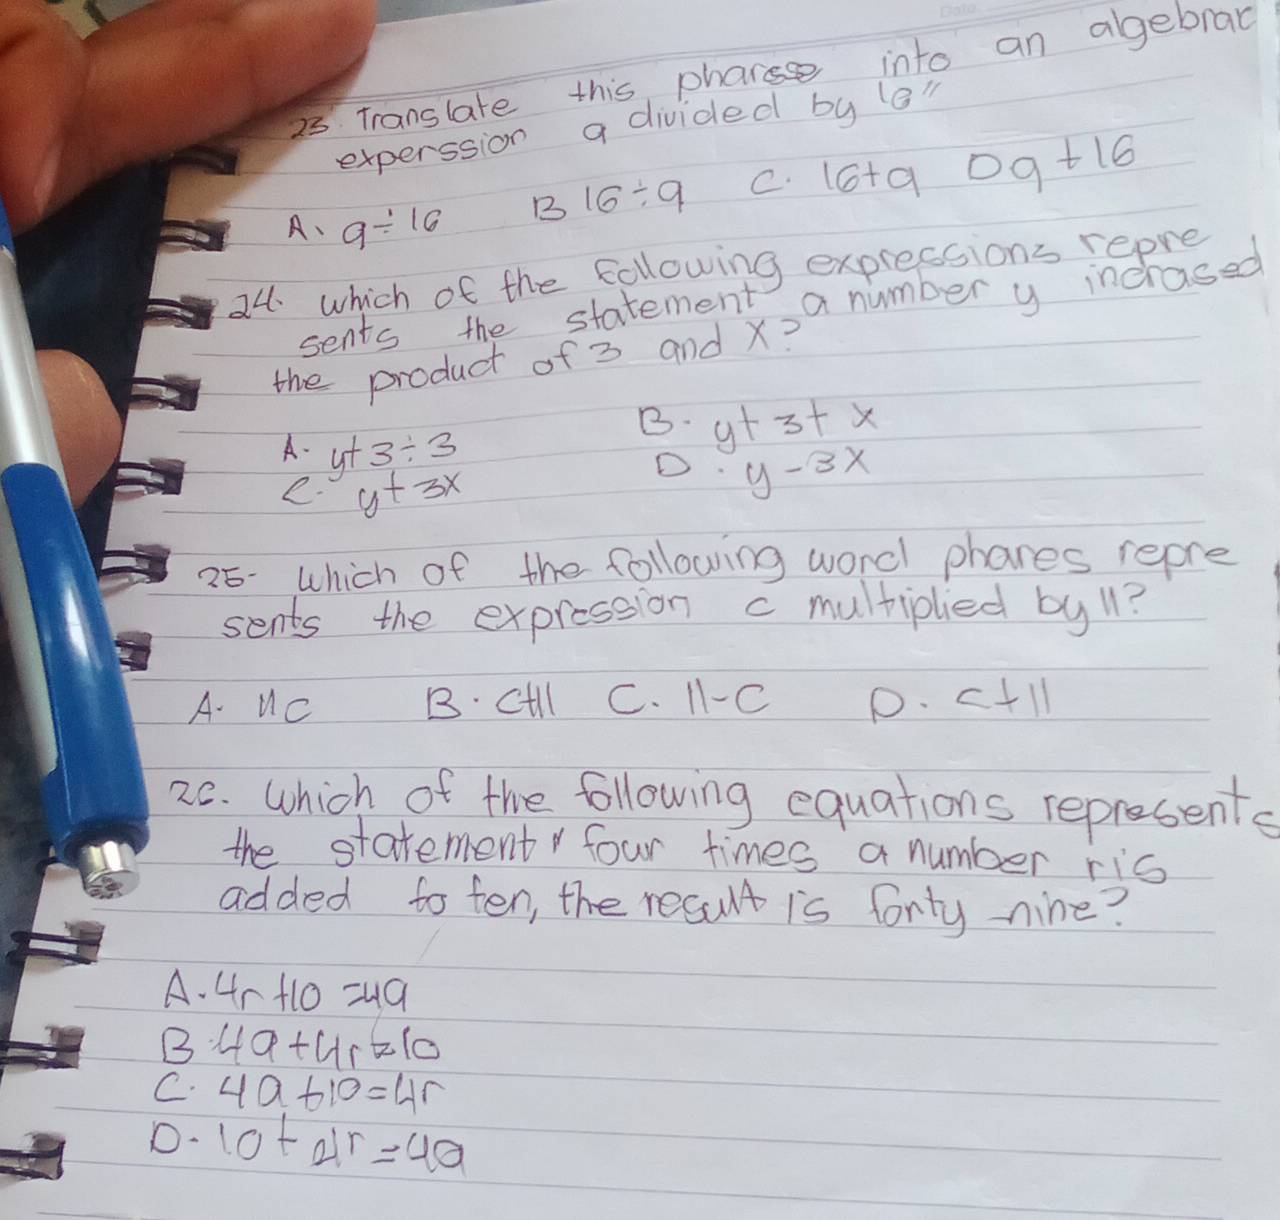 23. Translate this pharese into an algebrac
experssion q divided by 16"
A. q÷16 B 16÷q C. 16+q D q+16
24. which of the following expressions repre
sents the statement a number y incrased
the product of 3 and X?
A. y+3÷3 B. y+3+x
C. y+3x D. y-3X
25- which of the following word phares repre
sents the expression c multiplied by 11?
A. 11c B. c+11 C. 11-C D. c+11
26. which of the following equations represents
the statement " four times a number ris
added to ten, the result is forty nine?
A. 4r+10 =49
B. 49+4r=10
C. 49+10=4r
D. 10+4r=49